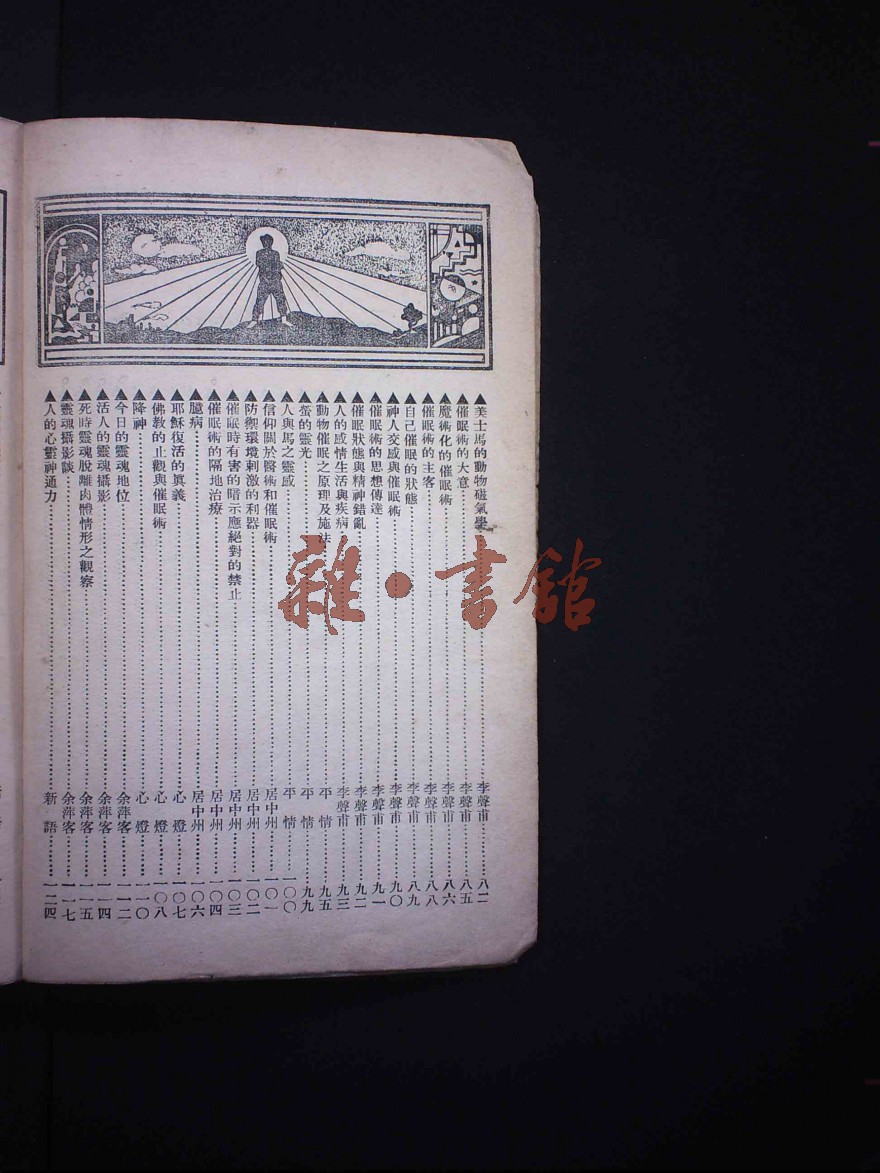 ▲美士馬的動物磁氣學 李聲甫 八二
▲催眠術的大意 李聲甫 八五
▲魔術化的催眠術 李聲甫 八六
▲催眠術的主客 李聲甫 八八
▲自己催眠的狀態 李聲甫 八九
▲神人交感與催眠術 李聲甫 九〇
▲催眠術的思想傳達 李聲甫 九一
▲催眠狀態與精神錯亂 李聲甫 九二
▲人的感情生活與疾病 李聲甫 九三
▲動物催眠之原理及施法 平情 九五
▲螢的靈光 平情 九九
▲人與馬之靈感 平情 一〇〇
▲信仰關於醫術和催眠術 居中州 一〇一
▲防禦環境刺激的利器 居中州 一〇二
▲催眠時有害的暗示應絕對的禁止 居中州 一〇三
▲催眠術的隔地治療 居中州 一〇四
▲臆病 居中州 一〇六
▲耶穌復活的眞義 心燈 一〇七
▲佛教的止觀與催眠術 心燈 一〇八
▲降神 心燈 一一〇
▲今日的靈魂地位 余萍客 一一二
▲活人的靈魂攝影 余萍客 一一四
▲死時靈魂脫離肉體情形之觀察 余萍客 一一五
▲靈魂攝影談 余萍客 一一七
▲人的心靈神通力 新語 一二四
雜·書館